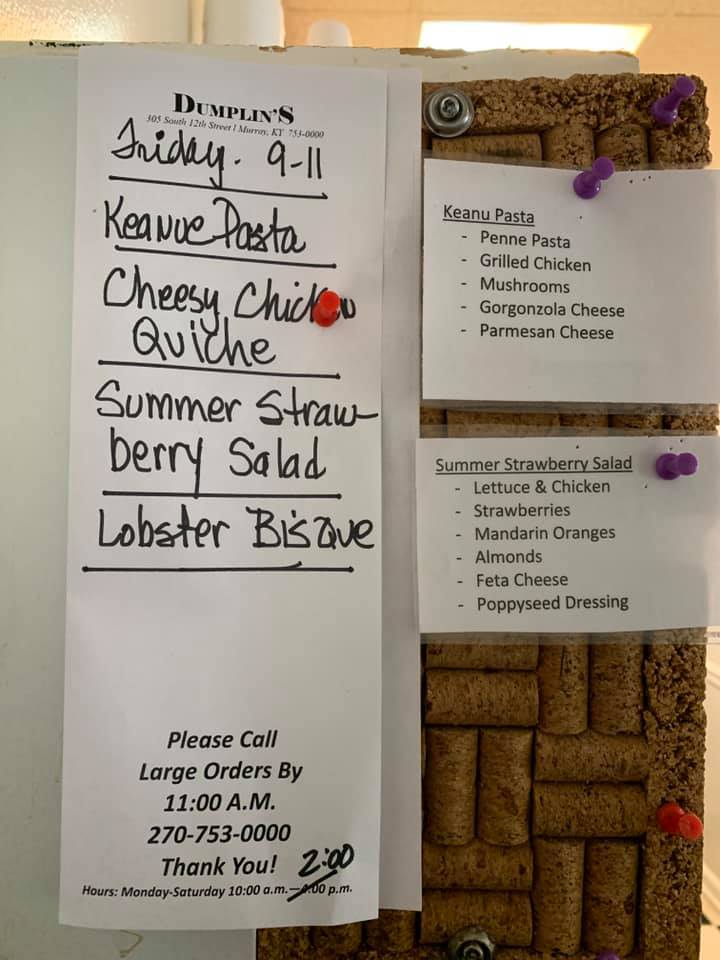 DUMPLIN'S
305 South 12th Street | Murray, KY 753-0000
Friday. 9-11
Keanue Pasta
Cheesy Chicken
Quiche
Summer Straw-
berry Salad
Lobster Bisque
Please Call
Large Orders By
11:00 A.M.
270-753-0000
Thank You! 2:00
Hours: Monday-Saturday 10:00 a.m.—4:00 p.m.
Keanu Pasta
- Penne Pasta
- Grilled Chicken
- Mushrooms
- Gorgonzola Cheese
- Parmesan Cheese
Summer Strawberry Salad
- Lettuce & Chicken
- Strawberries
- Mandarin Oranges
- Almonds
- Feta Cheese
- Poppyseed Dressing